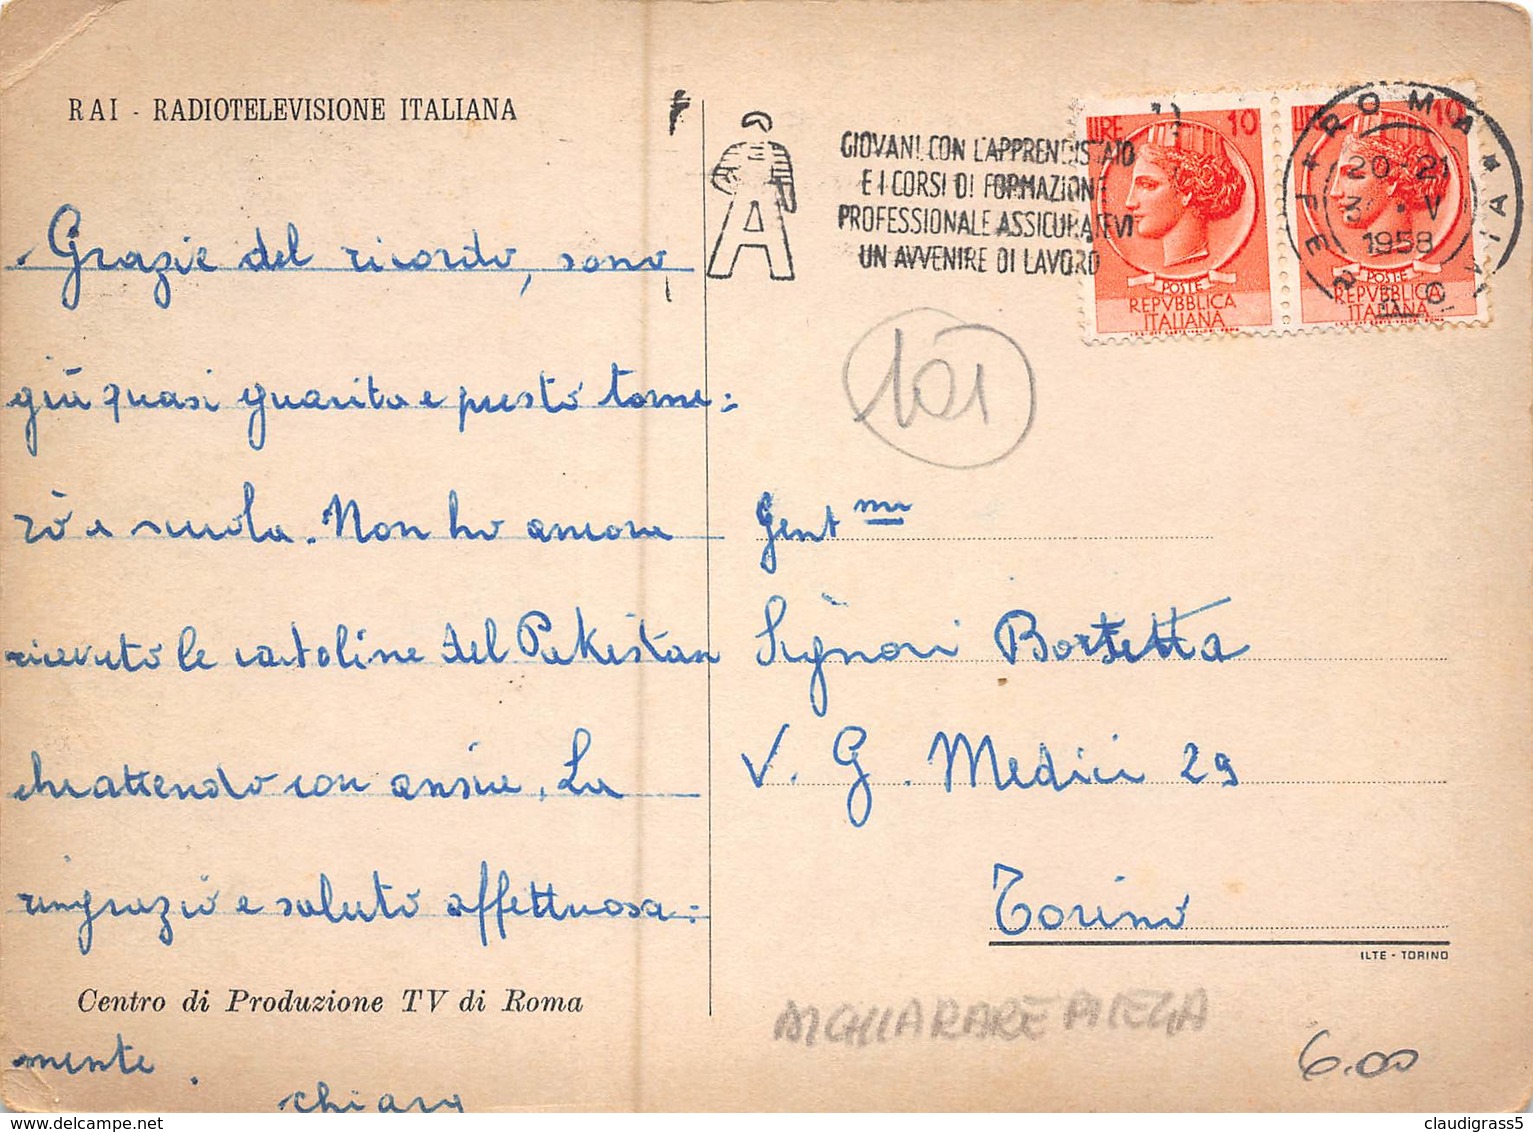 RAI - RADIOTELEVISIONE ITALIANA
Grazie del ricordo, sono
già quasi guarita e presto torne=
rò a scuola. Non ho ancora
ricevuto le cartoline del Pakistan
che attendo con ansia. La
ringrazio e saluto affettuosa=
Centro di Produzione TV di Roma
mente.
chiara
GIOVANI CON L'APPRENDISTATO
E I CORSI DI FORMAZIONE
PROFESSIONALE ASSICURATEVI
UN AVVENIRE DI LAVORO
A
LIRE 10
POSTE
REPVBBLICA
ITALIANA
LIRE 10
POSTE
REPVBBLICA
ITALIANA
ROMA
FERROVIA
20-21
V
1958
101
Gent mi
Signori Borsetta
V. G. Medici 29
Torino
ILTE - TORINO
6.00
claudigrass5